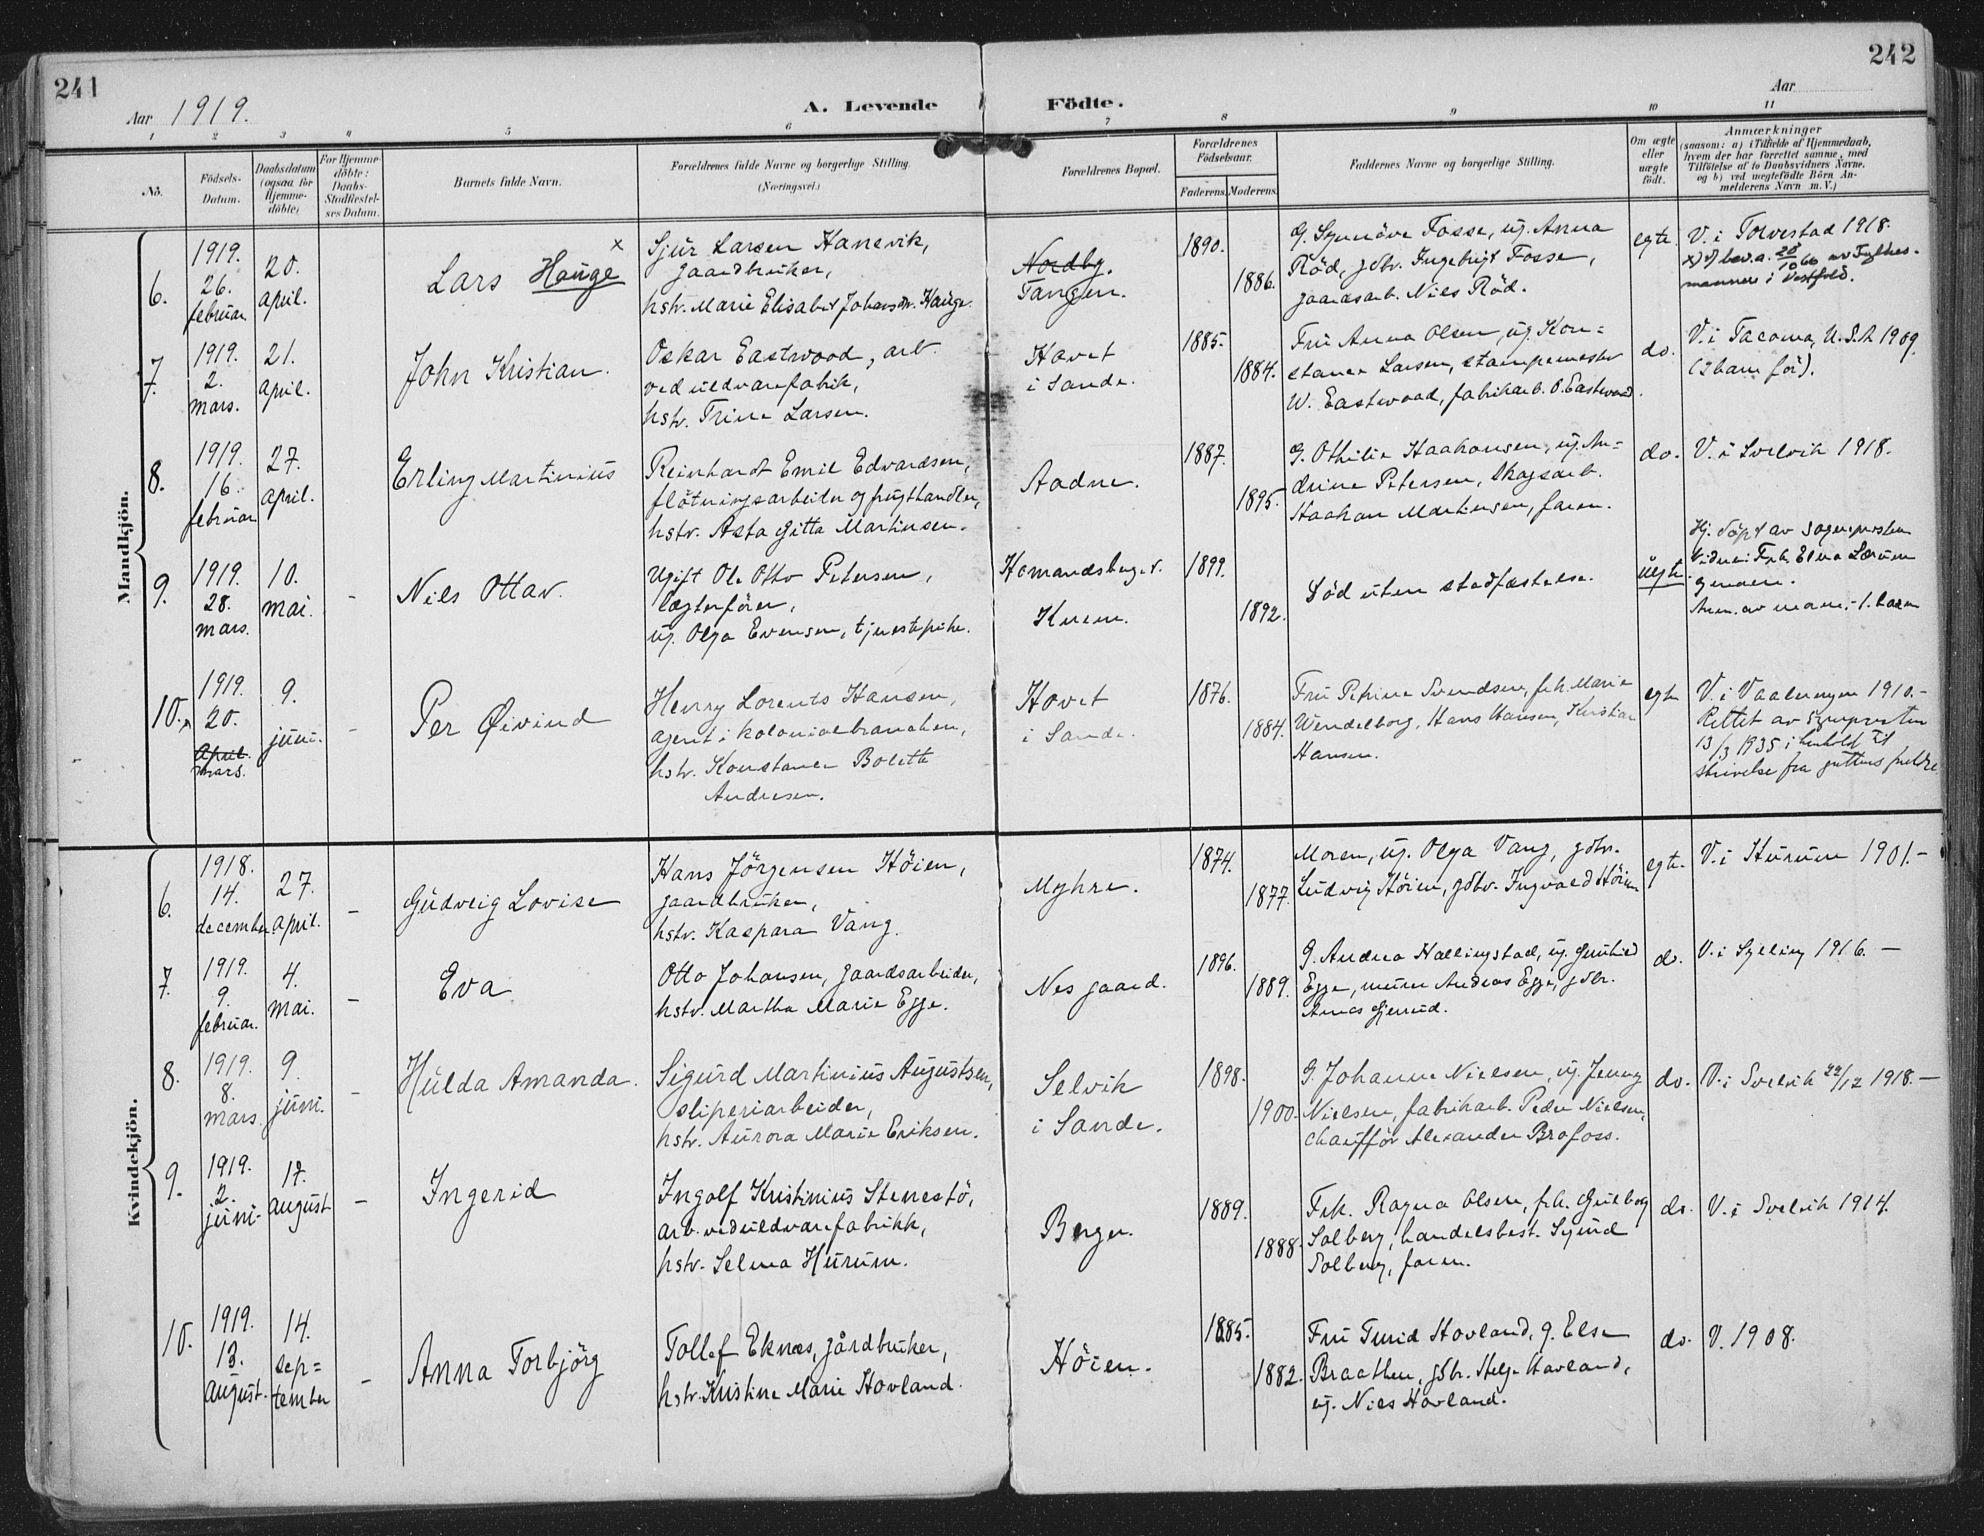 241
242
Aar 1919.
A. Levende
Födte.
Aar
1 2 3 4 5 6 7 8 9 10 11
No.
Födsels-
Datum.
Daabsdatum
(ogsaa for
Hjemme-
döbte)
For Hjemme-
döbte:
Daabs-
Stadfæstel-
ses Datum.
Barnets fulde Navn.
Forældrenes fulde Navne og borgerlige Stilling.
(Næringsvei.)
Forældrenes Bopæl.
Forældrenes
Födselsaar.
Faderens. Moderens.
Faddernes Navne og borgerlige Stilling.
Om ægte
eller
uægte
født.
Anmærkninger
(saasom: a) i Tilfælde af Hjemmedaab,
hvem der har forrettet samme, med
Tilföielse af to Daabsvidners Navne.
og b) ved uegtefödte Börn An-
melderens Navn m. V.)
Mandkjön.
6.
1919.
26.
februar.
20.
april.
Lars Hauge x
Sjur Larsen Hanevik,
gaardbruker,
hstr. Marie Elisabet Johansdtr. Hauge.
Nordby.
Tangen.
1890.
1886.
G. Synnöve Fosse, ug. Anna
Röd, gdbr. Ingebrigt Fosse,
gaardsarb. Niels Röd.
egte
V. i Torvestad 1918.
mannen i Vestfold.
7.
1919.
2.
mars.
21.
april.
John Kristian.
Oskar Eastwood, arb.
ved uldvarefabrik,
hstr. Trine Larsen.
Havet
i Sande.
1885.
1884.
Fru Anna Olsen, ug. Kon=
stance Larsen, stampemester
W. Eastwood, fabrikarb. O. Eastwood.
do.
V. i Tacoma, U.S.A 1909.
(2 barn för).
8.
1919.
16.
februar
27.
april.
Erling Martinius
Reinhardt Emil Edvardsen,
flötningsarbeider og frugthandler,
hstr. Asta Gitta Martinsen.
Aadne.
1887.
1895.
G. Othilie Haakonsen, ug. An=
drine Petersen, Skogsarb.
Haakon Martinsen, faren.
do.
V. i Svelvik 1918.
9.
1919.
28.
mars.
10.
mai.
-
Nils Ottar.
Ugift Ole Otto Petersen,
lægterförer,
ug. Olga Evensen, tjenestepike.
Komandsberget.
Knem.
1899.
1892.
Död uten stadfæstelse.
uegte
Hj. döpt av sogneprsten
Vidner: Frk. Elna Lærum
Anm. av moren. - 1. barn
10.
1919.
20.
April.
mars.
9.
juni.
-
Per Øivind
Henry Lorents Hansen,
agent i kolonialbranchen,
hstr. Konstance Bolette
Andresen.
Hovet
i Sande.
1876.
1884.
Fru Petrine Svendsen, frk. Marie
Wendelborg, Hans Hansen, Kristian
Hansen.
egte
V. i Vaalerengen 1910.-
Rettet av Sogneprsten
13/3 1935 i henhold til
skrivelse fra guttens foreldre
Kvindekjön.
6.
1918.
14.
december
27.
april.
-
Gudveig Lovise
Hans Jörgensen Höien,
gaardbruker,
hstr. Kaspara Vang.
Myhre.
1874.
1877.
Moren, ug. Olga Vang, gdbr.
Ludvig Höien, gdbr. Ingvald Höien
egte.
V. i Hurum 1901.-
7.
1919.
9.
februar.
4.
mai.
-
Eva
Otto Johansen, gaardsarbeider,
hstr. Martha Marie Egge.
Nes gaard.
1896.
1889.
G. Andrea Hallingstad, ug. Gunhild
Egge, murer Andreas Egge, gdbr.
do.
V. i Sylling 1916. -
8.
1919.
8.
mars.
9.
juni.
-
Hulda Amanda.
Sigurd Martinius Augustsen,
sliperiarbeider,
hstr. Aurora Marie Eriksen.
Selvik
i Sande.
1898.
1900.
G. Johanne Nielsen, ug. Jenny
Nielsen, fabrikarb. Peder Nielsen,
chaufför Alexander Brofoss.
do.
V. i Svelvik 22/12 1918.-
9.
1919.
2.
juni.
17.
august
-
Ingerid
Ingolf Kristinius Stenestö,
arb. ved uldvarefabrikk,
hstr. Selma Hurum.
Berger.
1889.
1888.
Frk. Ragna Olsen, frk. Guilborg
Solberg, handelsbest. Sigurd
Solberg, faren.
do.
V. i Svelvik 1914.
10.
1919.
13.
august.
14.
sep=
tember
-
Anna Torbjörg
Tollef Eknæs, gårdbruker,
hstr. Kristine Marie Hovland.
Höien.
1885.
1882.
Fru Turid Hovland, g. Else
Braathen, gdbr. Helge Hovland,
ug. Niels Hovland.
do.
V. 1908.